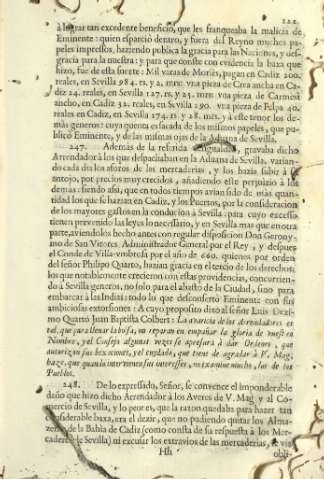 à lograr tan excedente beneficio, que les franqueaba la malicia de
Eminente: quien esparció dentro, y fuera del Reyno muchos pa-
peles impressos, haziendo publica la gracia para las Naciones, y des-
gracia para la nuestra: y para que conste con evidencia la baxa que
hizo, fue de esta suerte: Mil varas de pagan en Cadiz 200.
reales, en Sevilla 984. rs. y 2. mrs: vna pieza de ancha en Ca-
diz 24. reales, en Sevilla 127. rs. y 25. mrs: vna pieza de Carmesi
ancho, en Cadiz 32. reales, en Sevilla 290. vna pieza de Felpa 40.
reales en Cadiz, en Sevilla 174. rs. y 28. mrs. y à este tenor los de-
màs generos: cuya quenta es sacada de los mismos papeles, que pu-
blicò Eminente, y de las mismas ojas de la Aduana de Sevilla.
247. Además de la referida gravaba dicho
Arrendador à los que despachaban en la Aduana de Sevilla, varian-
do cada dia los aforos de las mercaderias, y los hazia subir à su
antojo, por precios muy crecidos, añadiendo este perjuizio à los
demàs: siendo assi, que en todos tiempos avian sido de màs quan-
tidad los que se hazian en Cadiz, y los Puertos, por la consideracion
de los mayores gastos en la conducion à Sevilla: para cuyo excesso
tienen prevenido las leyes lo necessario, y en Sevilla mas que en otra
parte, aviendolos hecho antes con regular disposicion Don Gerony-
mo de San Vitores, Administrador General por el Rey, y despues
el Conde de Villa-vmbrosa por el año de 660. quienes por orden
del señor Phelipo Quarto, hazian gracia en el tercio de los derechos:
los que notablemente crecieron con estas providencias, concurrien-
do à Sevilla generos, no solo para el abasto de la Ciudad, sino para
embarcar à las Indias: todo lo que desconsertò Eminente con sus
ambiciosas extorsiones: A cuyo proposito dixo al señor Luis Deci-
mo Quarto Juan Baptista Colbert: La avaricia de los Arrendadores es
tal, que para llenar la bolsa, no reparan en empañar la gloria de vuestro
Nombre, y el Consejo algunas vezes se apresura à dar Ordenes, que
autorizan sus y engañado, que tiene de agradar à V. Mag.
haze, que quando intervienen sus intereses, no examine mucho, los de los
Pueblos.
248. De lo expressado, Señor, se convence el imponderable
daño que hizo dicho Arrendador à los Averes de V. Mag. y al Co-
mercio de Sevilla, y lo peor es, que la razon que daba para hazer tan
considerable baxa, era el dezir, que no pudiendo quitar los Alma-
zenes de la Bahia de Cadiz (como consta de su respuesta à los Mer-
caderes de Sevilla) ni escusar los extravios de las mercaderias, se via
Hh
obli-